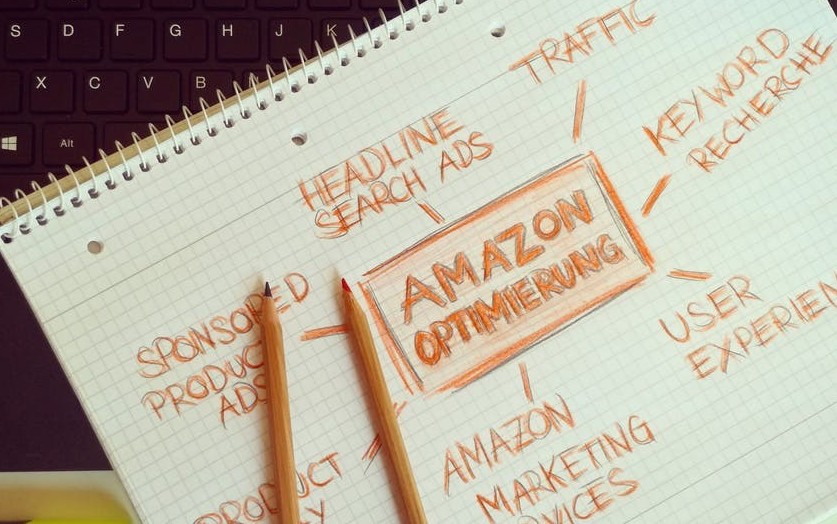 S D F G H J K
X C V B
Alt
TRAFFIC
KEYWORD
RECHERCHE
HEADLINE
SEARCH ADS
AMAZON
OPTIMIERUNG
SPONSORED
PRODUCT
ADS
USER
EXPERIEN
AMAZON
MARKETING
VICES
PRODUCT